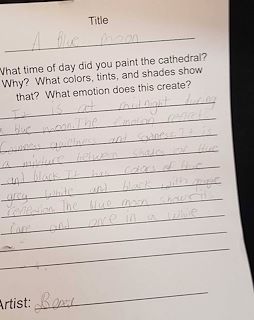 Title
A Blue moon
What time of day did you paint the cathedral?
Why? What colors, tints, and shades show
that? What emotion does this create?
It is at midnight during
a blue moon. The emotion
quietness and
a mixture between shades of blue
and black. It has colors of blue
grey white and black with
The blue moon shows it
rare and once in a while
Artist: